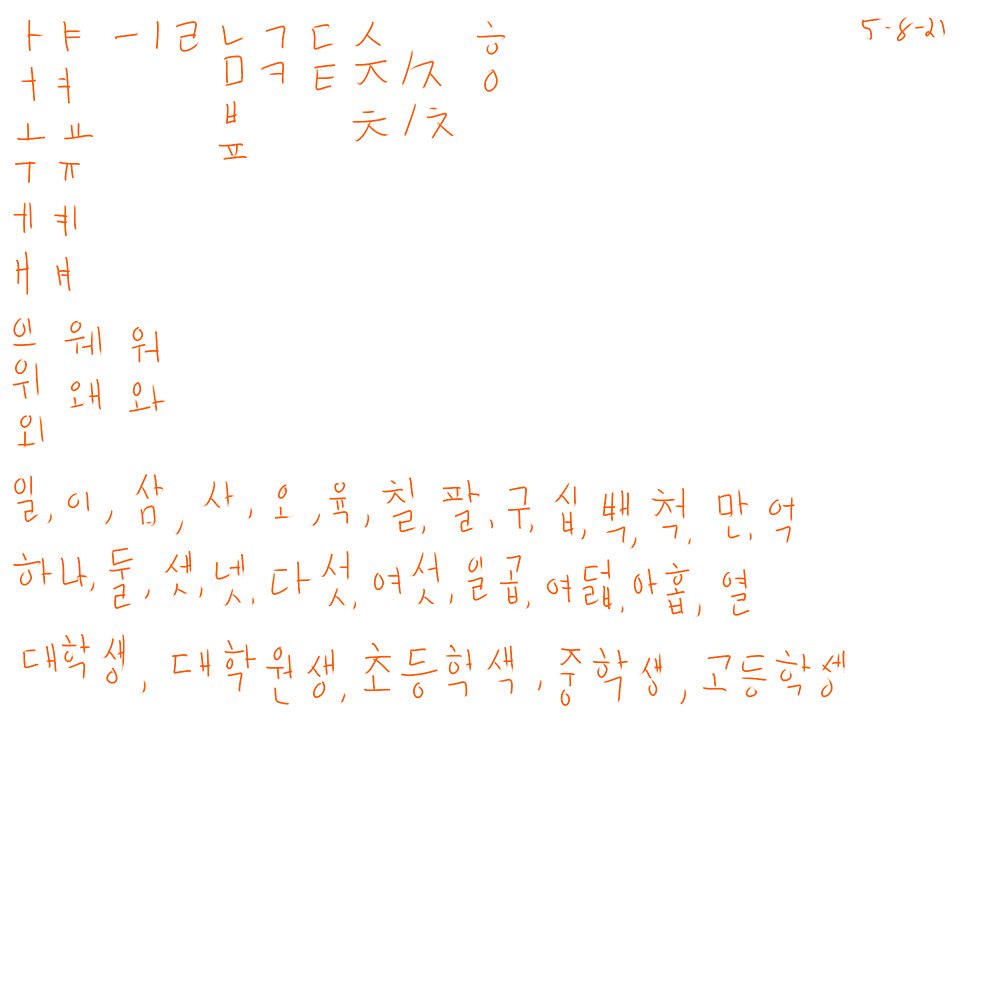 ㅏ ㅑ ㅡ ㅣ ㄹ ㄴ ㄱ ㄷ ㅅ ㅎ 5-8-21
ㅓ ㅕ ㅁ ㅋ ㅌ ㅈ/ㅈ ㅇ
ㅗ ㅛ ㅂ ㅊ/ㅊ
ㅜ ㅠ ㅍ
ㅔ ㅖ
ㅐ ㅒ
웨 워
위 왜 와
외
일, 이, 삼, 사, 오, 육, 칠, 팔, 구, 십, 백, 척, 만, 억
하나, 둘, 셋, 넷, 다섯, 여섯, 일곱, 여덟, 아홉, 열
대학생, 대학원생, 초등학색, 중학생, 고등학셍